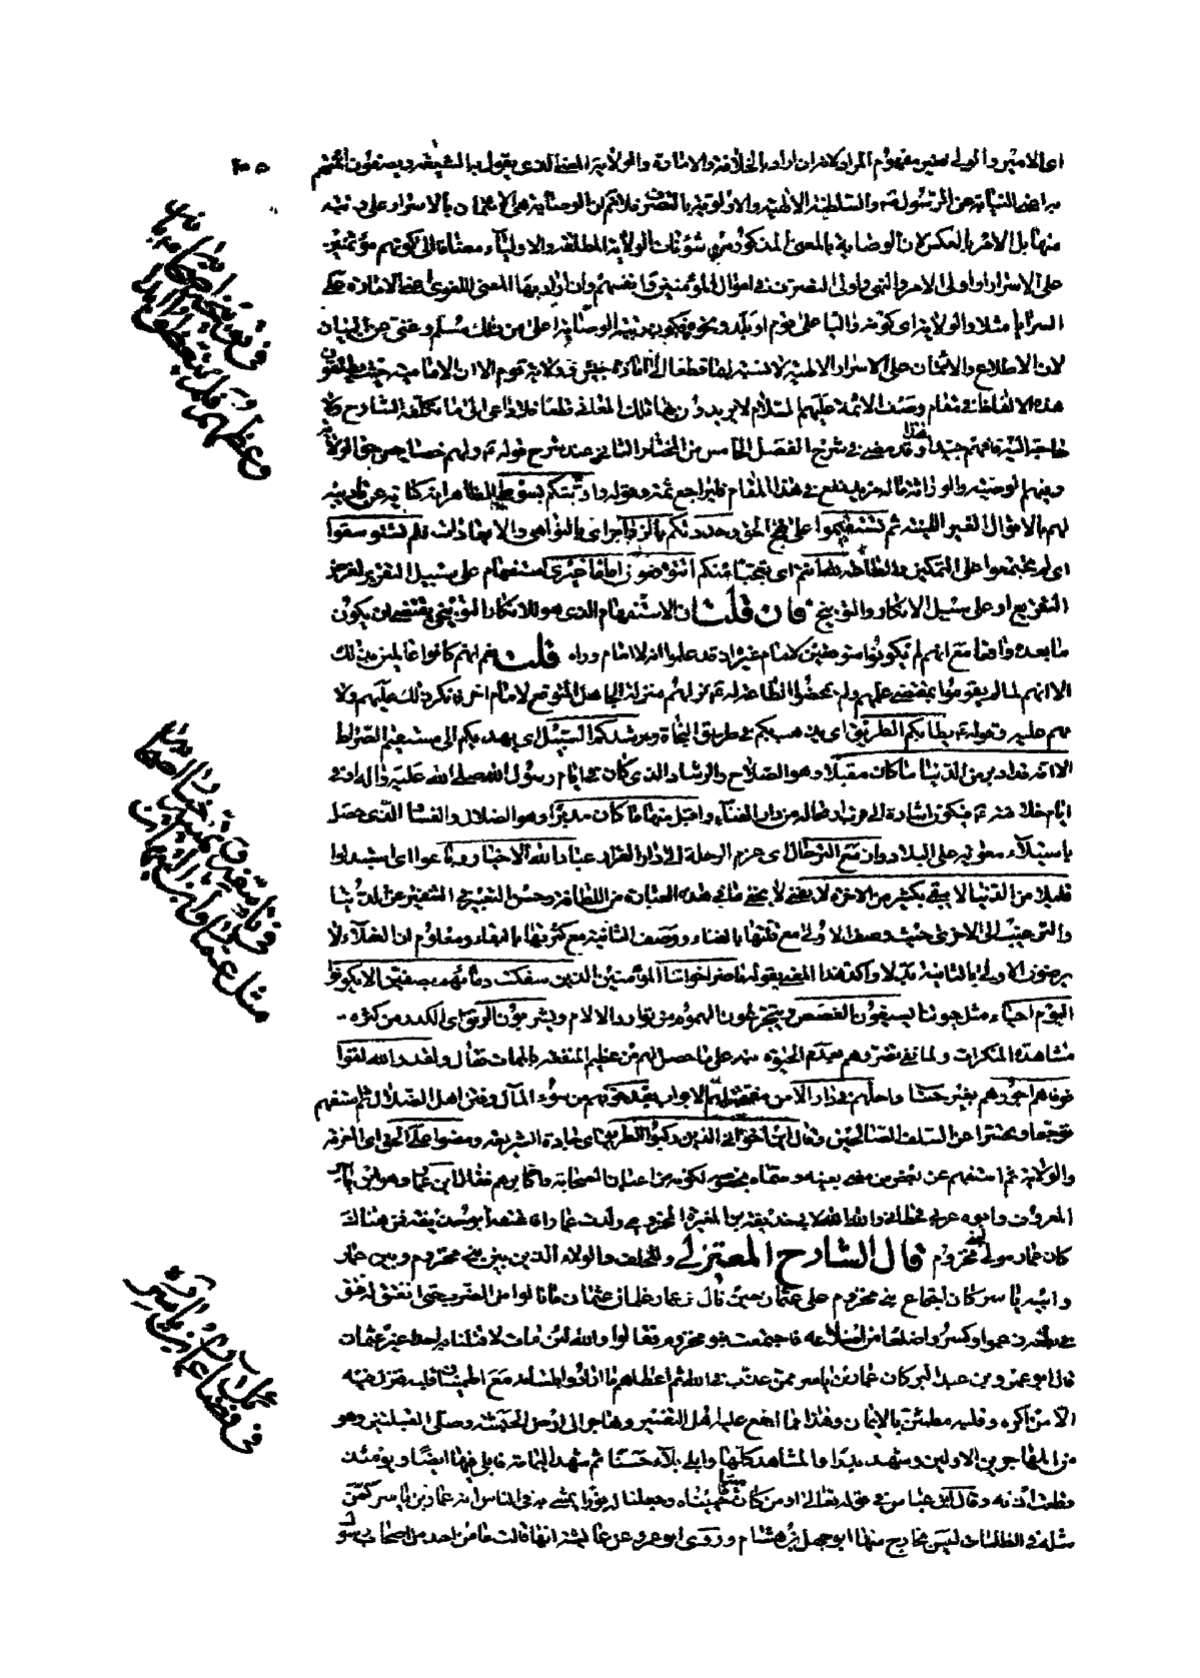 اى الامير والوالى صير مفهوم المراد لانه ان اراد بالخلافة والامامة والولاية المعنى الذى يقول به الشيعة ويصفون أئمتهم
به اعنى النيابة عن الرسول والسلطنة الالهية والاولوية بالتصرف فلا نم ان الوصاية هى الايتمان بالاسرار على رتبة
منها بل الامر بالعكس لان الوصاية بالمعنى المذكور من شؤنات الولاية المطلقة والاولياء مضافا الى كونهم مؤتمنين
على الاسرار اولى الامر والنهى واولى التصرف فى اموال المؤمنين وانفسهم وان اراد بها المعنى اللغوى اعنى الامارة على
السرايا مثلا والولاية اى كونه واليا على قوم او بلد ونحوه فكون مرتبة الوصاية اعلى من ذلك مسلم وغنى عن البيان
لان الاطلاع والايتمان على الاسرار الالهية لا نسبة لها قطعا الى امارة جيش وولاية قوم الا ان الامامية حيث يطلقون
هذه الالفاظ فى مقام وصف الائمة عليهم السلام لا يريدون بها تلك المعانى قطعا فلا داعى الى ما تكلفه الشارح ولا
حاجة اليه فافهم جيدا وقد مضى فى شرح الفصل الخامس من المختار الثانى عند شرح قوله ولهم خصايص حق الولاية
وفيهم الوصية والوراثة ماله مزيد نفع فى هذا المقام فليراجع ثمة وقوله وادبتكم بسوطى الظاهر انه كناية عن تاديبه
لهم بالاقوال الغير اللينة ثم تستقيموا على نهج الحق وحدوتكم بالزواجر اى بالنواهى والايعادات فلم تستوسقوا
اى لم تجتمعوا على التمكين والطاعة لله انتم اى تعجبا منكم اتتوقعون اماما غيرى استفهام على سبيل التقرير لغرض
التقريع او على سبيل الانكار والتوبيخ فان قلت ان الاستفهام الذى هو للانكار التوبيخى يقتضى ان يكون
ما بعده واقعا مع انهم لم يكونوا متوقعين لامام غيره اذ قد علموا انه لا امام وراه قلت نعم انهم كانوا عالمين بذلك
الا انهم لما لم يقوموا بمقتضى علمهم ولم يمحضوا الطاعة له نزلهم منزلة الجاهل المتوقع لامام اخر فانكر ذلك عليهم ولا
مهم عليه وقوله يطأ بكم الطريق اى يذهب بكم فى طريق النجاة ويرشدكم السبيل اى يهديكم الى مستقيم الصراط
الا انه قد ادبر من الدنيا ما كان مقبلا وهو الصلاح والرشاد الذى كان فى ايام رسول الله صلى الله عليه واله او فى
ايام خلافته فيكون اشارة الى قرب ارتحاله من دار الفناء واقبل منها ما كان مدبرا وهو الضلال والفساد الذى حصل
باستيلاء معوية على البلاد وازمع الترحال اى عزم الرحلة الى دار القرار عباد الله الاخيار وباعوا اى استبدلوا
قليلا من الدنيا لا يبقى بكثير من الاخرة لا يفنى لا يخفى ما فى هذه العبارة من اللطافة وحسن التعبير فى التنفير عن الدنيا
والترغيب الى الاخرى حيث وصف الاولى مع قلتها بالفناء ووصف الثانية مع كثرتها بالبقاء ومعلوم ان العقلاء لا
يرضون الاولى بالثانية بدلا واكد هذا المعنى بقوله ما ضر اخواننا المؤمنين الذين سفكت دماؤهم بصفين الا يكونوا
اليوم احياء مثل حيوتنا يسيغون الغصص ويتجرعون الهموم من توارد الالام ويشربون الرنق اى الكدر من كثرة
مشاهدة المنكرات ولما نفى تضررهم بعدم الحيوة نبه على ما حصل لهم من عظيم المنفعة بالممات فقال ولقد والله لقوا
فوفاهم اجورهم بغير حساب واحلهم دار الامن مفتحة لهم الابواب بعد خوفهم من سوء المآل وفتن اهل الضلال ثم استفهم
توجعا وتحسرا عن السلف الصالحين وقال اين اخوانى الذين ركبوا الطريق اى جادة الشريعة ومضوا على الحق اى المعرفة
والولاية ثم استفهم عن بعض من مضى بعينه وسماه بخصوصه لكونه من اعيان الصحابة واكابرهم فقال اين عمار وهو ابن ياسر
المعروف وابوه عربى قحطانى وامه امة لابى حذيفة بن المغيرة المخزومى ولدت عمارا فاعتقه ابو حذيفة فمن هناك
كان عمار مولى لبنى مخزوم قال الشارح المعتزلى وللحلف والولاء الذين بين بنى مخزوم وبين عمار
وابيه ياسر كان اجتماع بنى مخزوم على عثمان حين نال من عمار غلمان عثمان ما نالوا من الضرب حتى انفتق له فتق
فى بطنه زعموا وكسروا ضلعا من اضلاعه فاجتمعت بنو مخزوم فقالوا والله لئن مات لا قتلنا به احدا غير عثمان
قال ابو عمرو بن عبد البر كان عمار بن ياسر ممن عذب فى الله ثم اعطاهم ما ارادوا بلسانه مع اطمينان قلبه فنزل فيه
الا من اكره وقلبه مطمئن بالايمان وهذا مما اجمع عليه اهل التفسير وهاجر الى ارض الحبشة وصلى القبلتين وهو
من المهاجرين الاولين وشهد بدرا والمشاهد كلها وابلى بلاء حسنا ثم شهد اليمامة فابلى فيها ايضا ويومئذ
قطعت اذنه وقال ابن عباس فى قوله تعالى او من كان ميتا فاحييناه وجعلنا له نورا يمشى به فى الناس انه عمار بن ياسر كمن
مثله فى الظلمات ليس بخارج منها ابو جهل بن هشام وروى ابو عمرو عن عائشة انها قالت ما من احد من اصحاب رسول
فى فضائل عمار بن ياسر